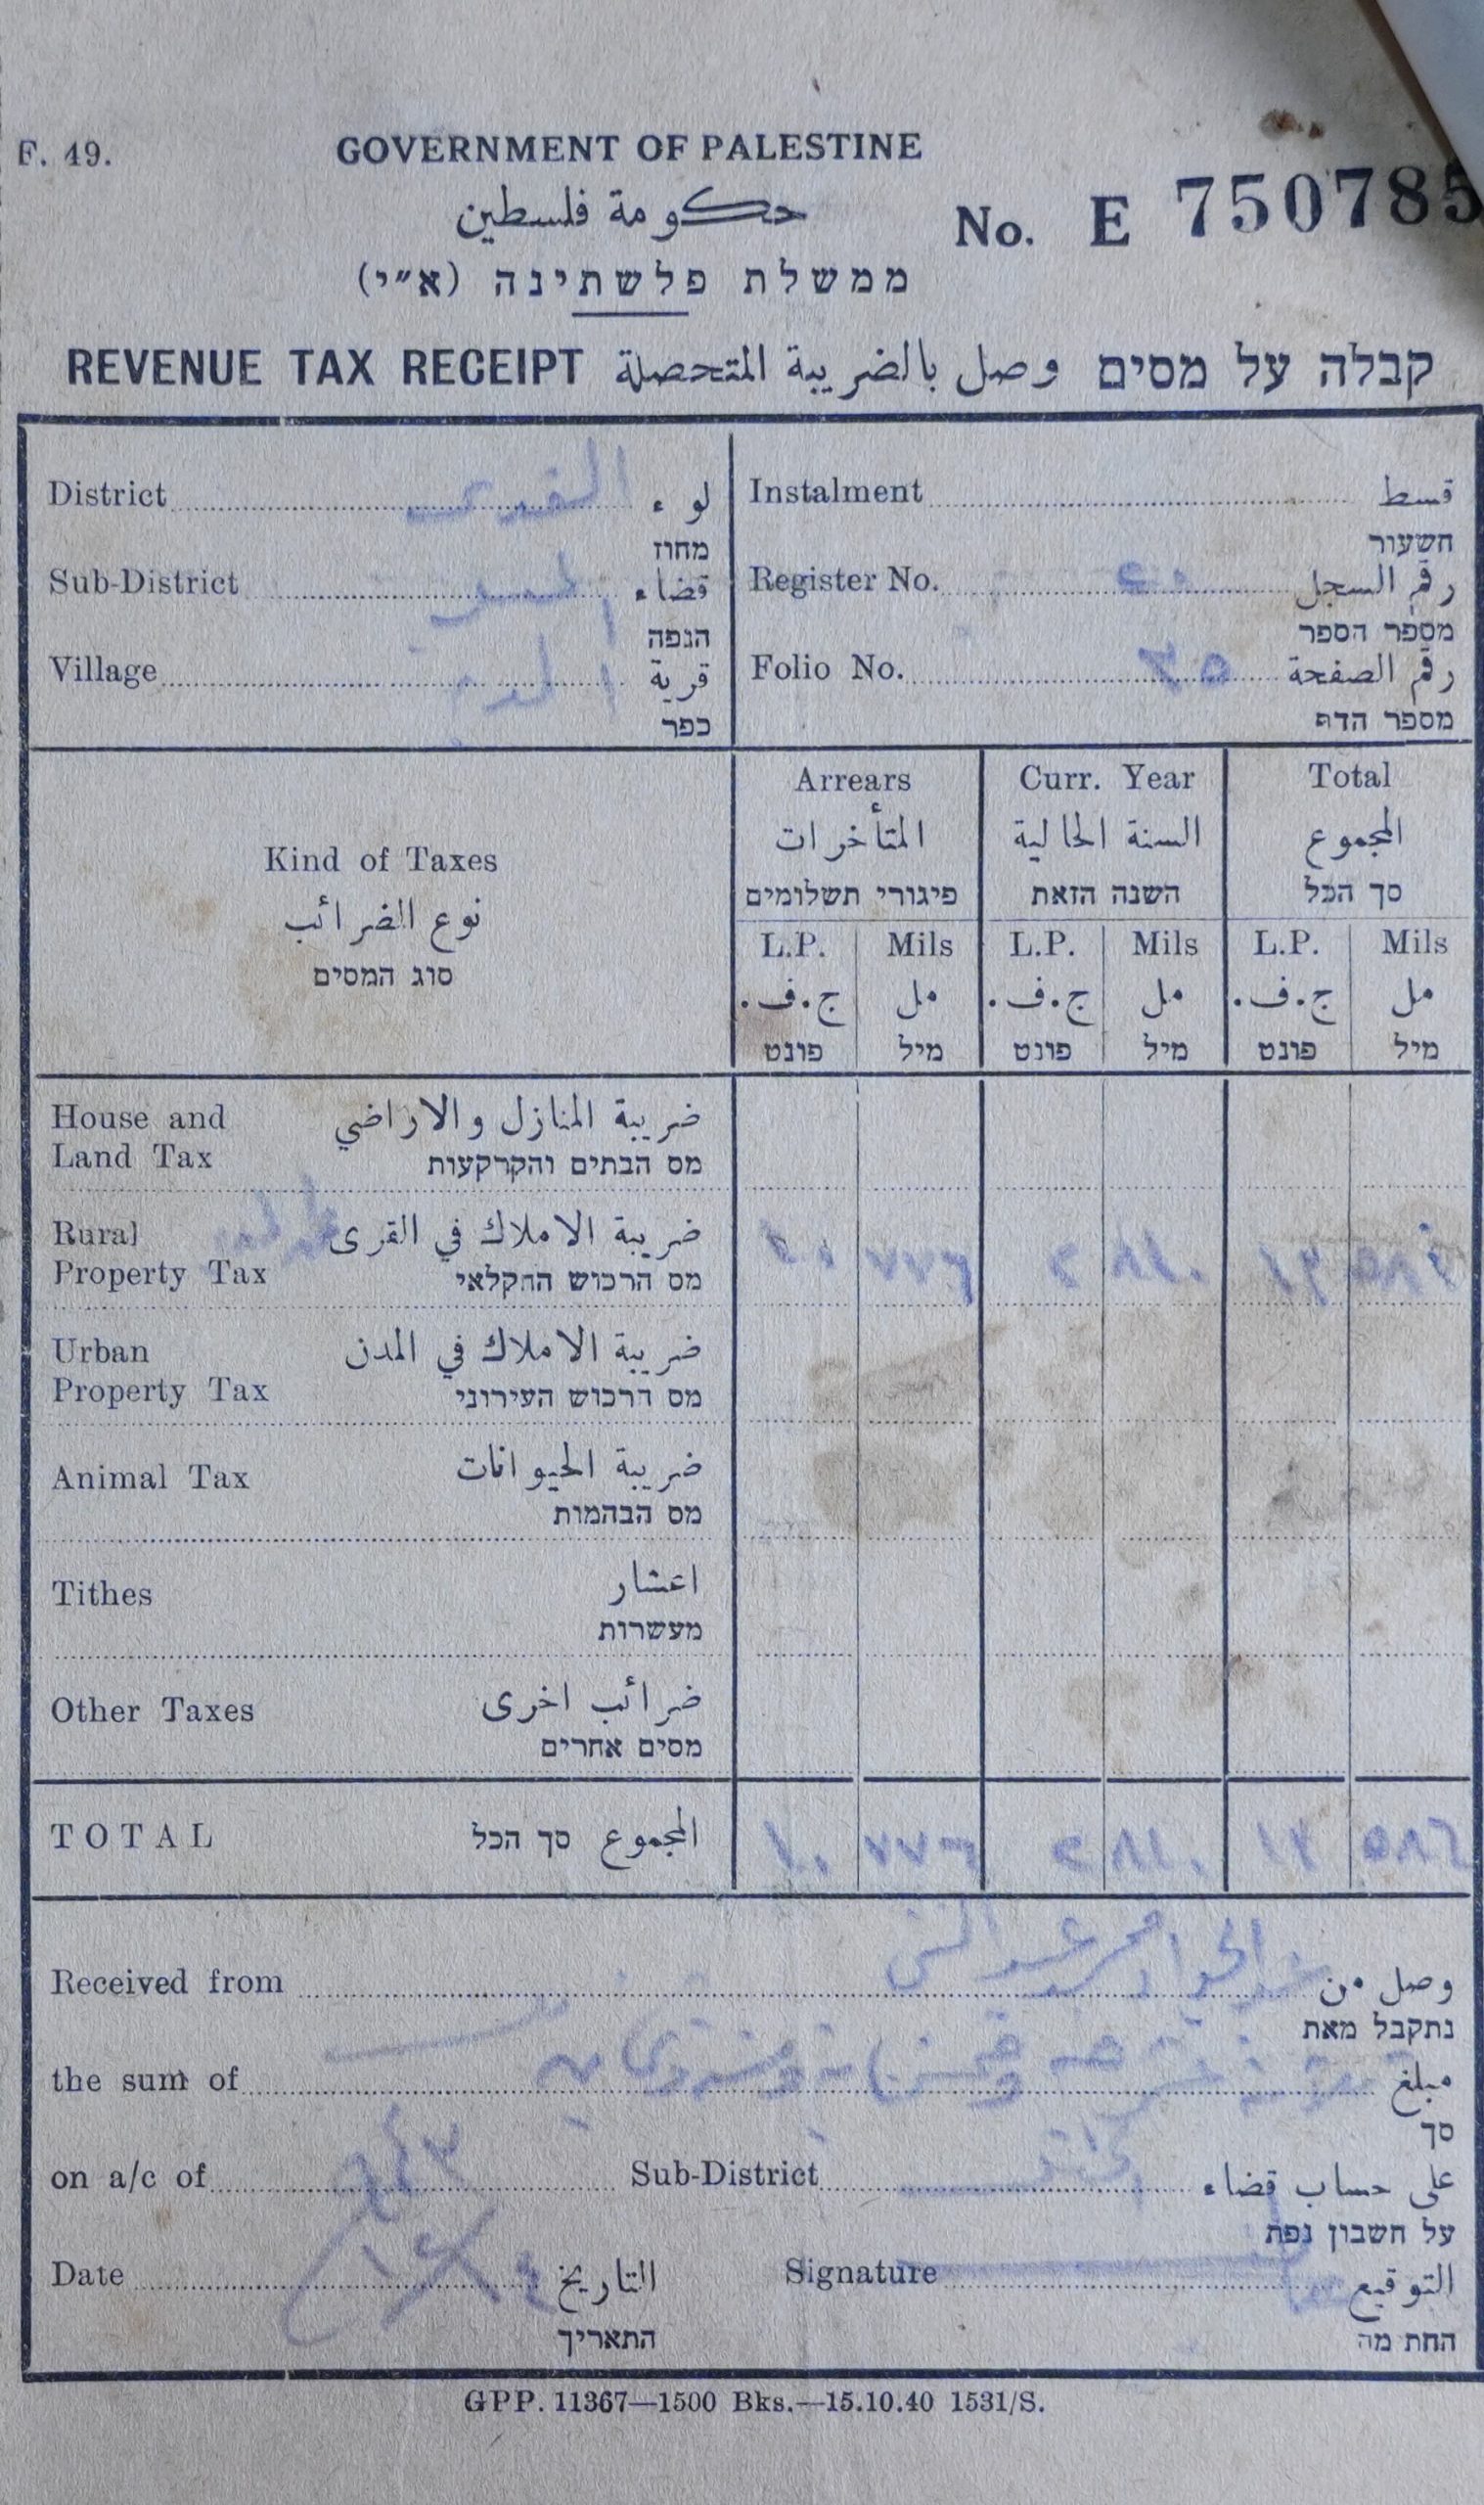 F. 49.
GOVERNMENT OF PALESTINE
حكومة فلسطين
No. E 750785
ממשלת פלשתינה (א״י)
REVENUE TAX RECEIPT وصل بالضريبة المتحصلة קבלה על מסים
District القدس لواء
מחוז
Sub-District قضاء
הנפה
Village قرية
כפר
Instalment قسط
השעור
Register No. رقم السجل
מספר הספר
Folio No. ٣٥ رقم الصفحة
מספר הדף
Kind of Taxes
نوع الضرائب
סוג המסים
Arrears
المتأخرات
פיגורי תשלומים
Curr. Year
السنة الحالية
השנה הזאת
Total
المجموع
סך הכל
L.P. Mils L.P. Mils L.P. Mils
ج.ف. مل ج.ف. مل ج.ف. مل
פונט מיל פונט מיל פונט מיל
House and Land Tax
ضريبة المنازل والاراضي
מס הבתים והקרקעות
Rural Property Tax
ضريبة الاملاك في القرى
מס הרכוש החקלאי
١٠ ٧٧٦ ٢ ٨١٠
Urban Property Tax
ضريبة الاملاك في المدن
מס הרכוש העירוני
Animal Tax
ضريبة الحيوانات
מס הבהמות
Tithes
اعشار
מעשרות
Other Taxes
ضرائب اخرى
מסים אחרים
TOTAL المجموع סך הכל
١٠ ٧٧٦ ٢ ٨١٠ ١٣ ٥٨٦
Received from عبد الجواد محمد عبد النبي وصل من
נתקבל מאת
the sum of مبلغ
סך
on a/c of ٩٤٣ Sub-District على حساب قضاء
על חשבון נפת
Date التاريخ
התאריך
Signature التوقيع
החתמה
GPP. 11367—1500 Bks.—15.10.40 1531/S.